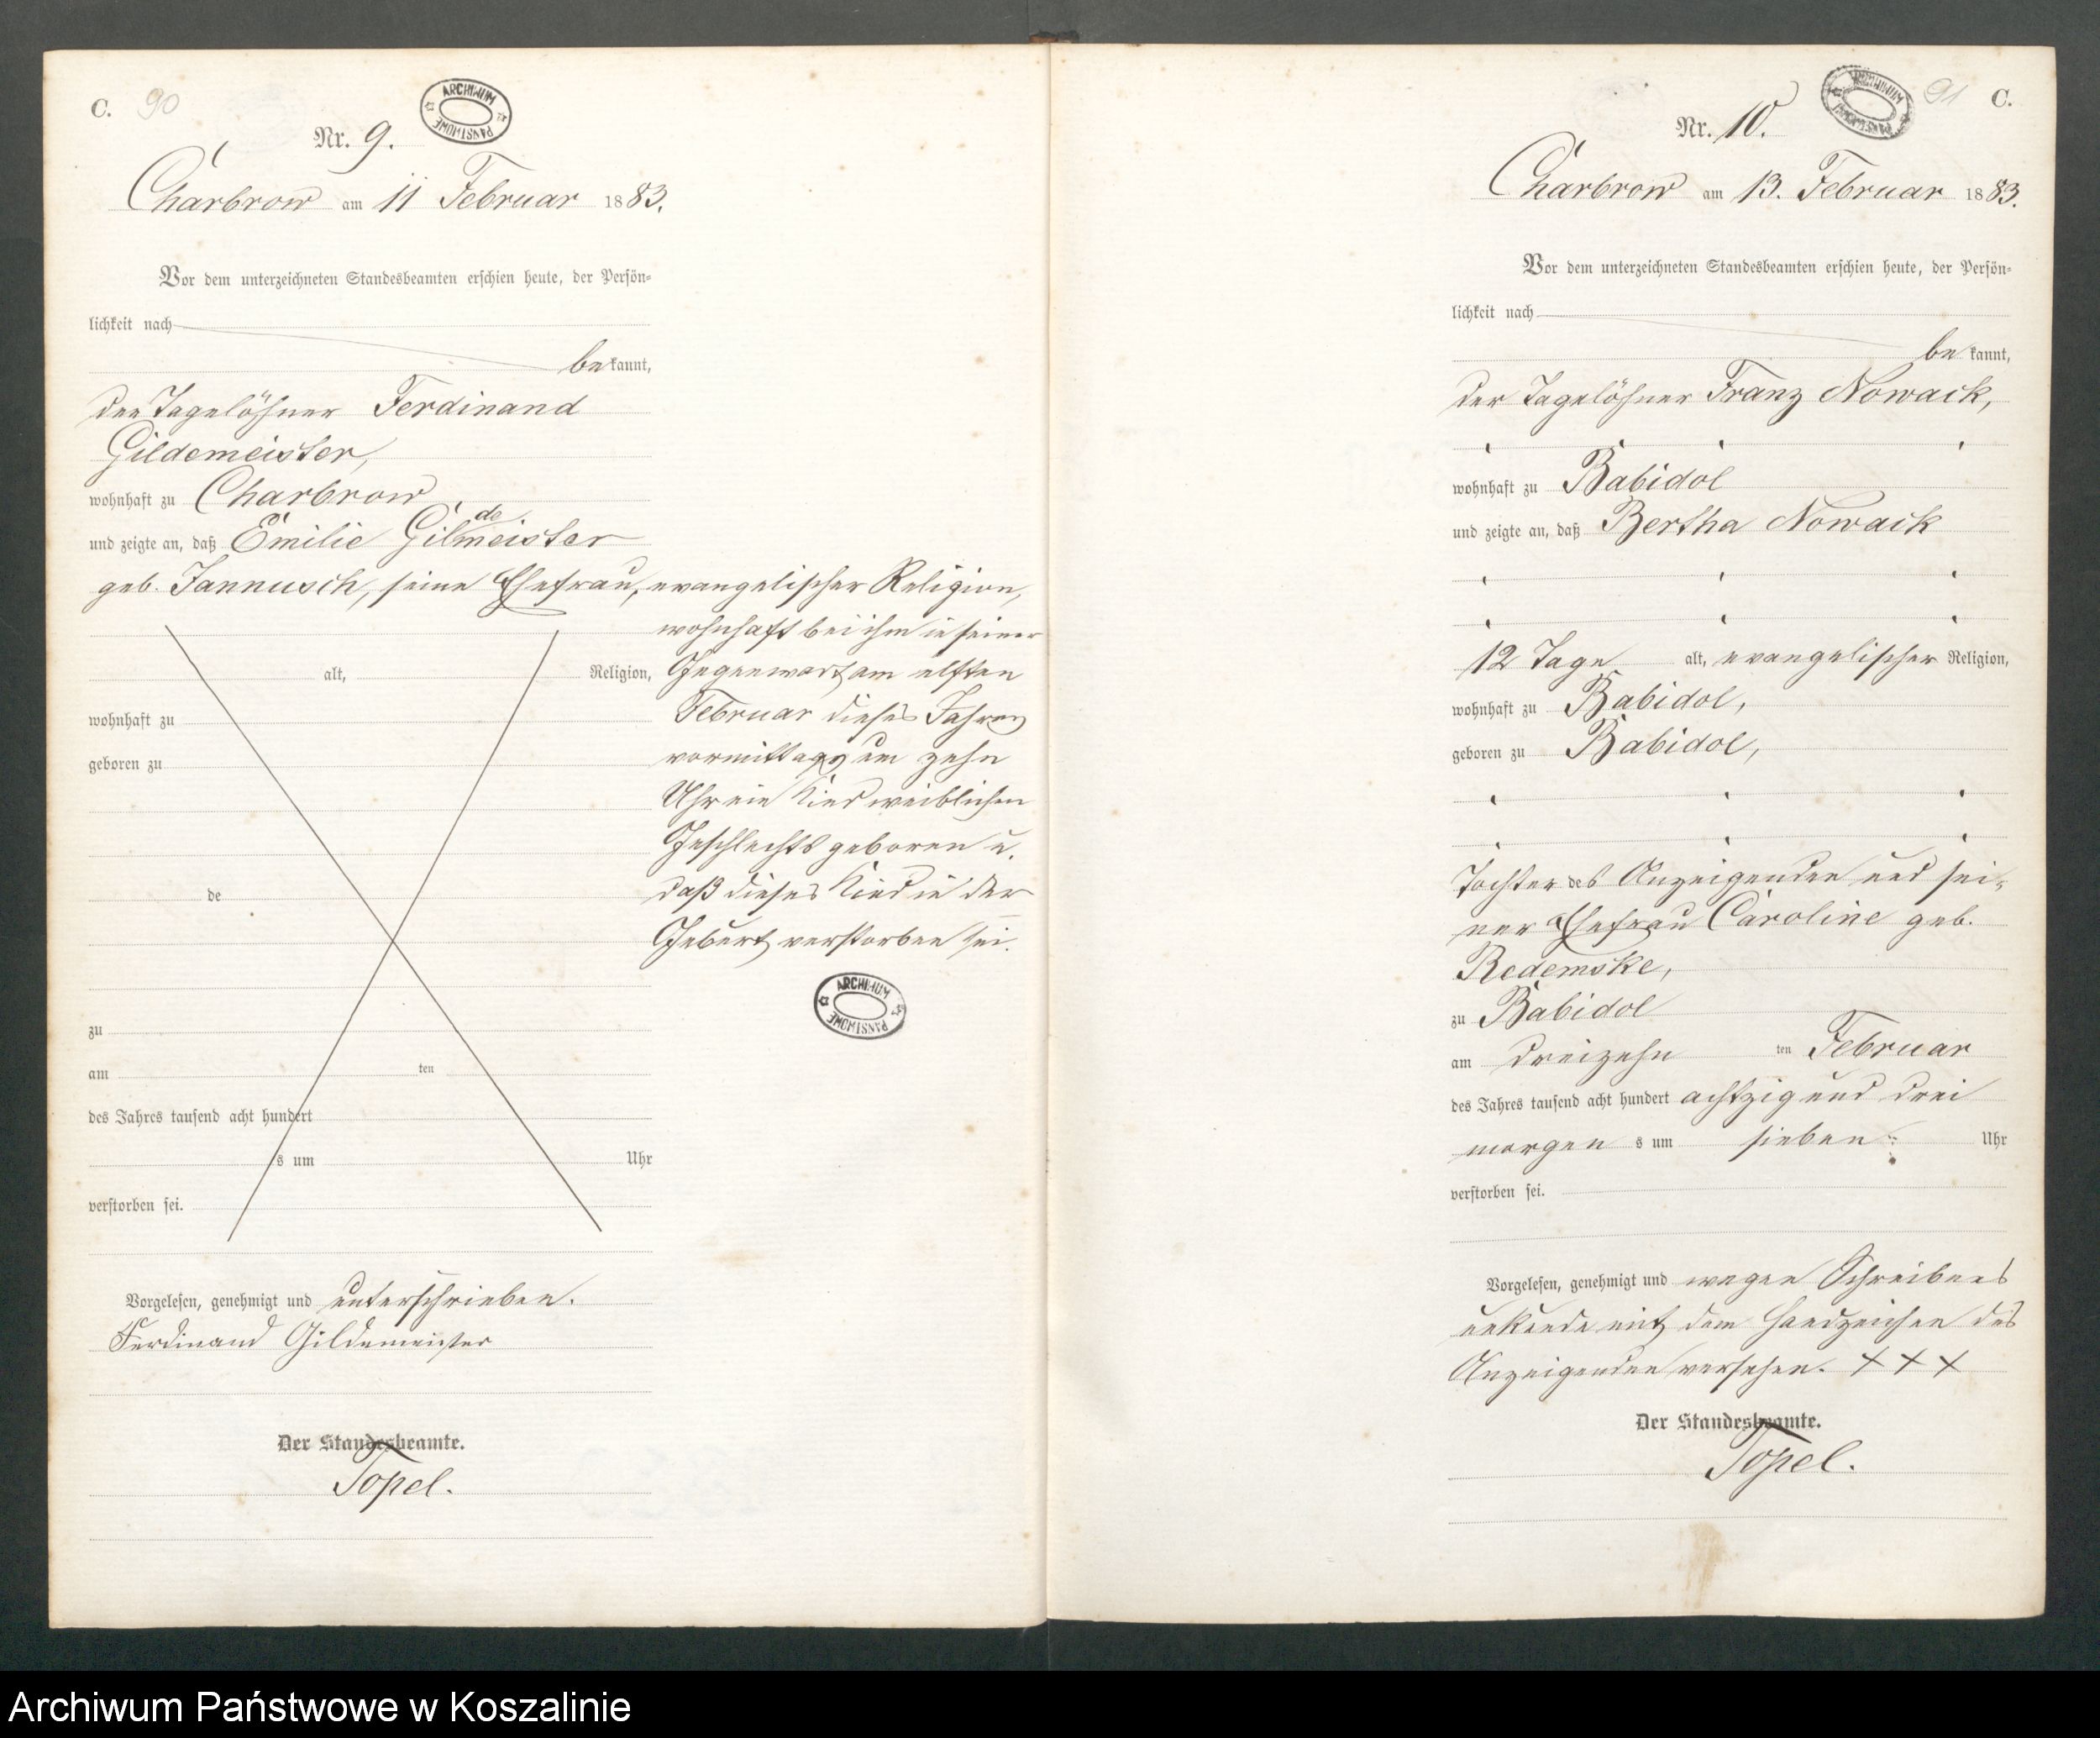 C. 90
ARCHIWUM PAŃSTWOWE
Nr. 9.
Charbrow am 11 Februar 1883.
Vor dem unterzeichneten Standesbeamten erschien heute, der Persön-
lichkeit nach
bekannt,
der Tagelöhner Ferdinand
Gildemeister,
wohnhaft zu Charbrow,
und zeigte an, daß Emilie Gildemeister
geb. Jannusch, seine Ehefrau, evangelischer Religion,
wohnhaft bei ihm in seiner
alt, Religion, Gegenwart am elften
wohnhaft zu Februar dieses Jahres
geboren zu vormittags um zehn
Uhr ein Kind weiblichen
Geschlechts geboren u.
de daß dieses Kind in der
Geburt verstorben sei.
ARCHIWUM PAŃSTWOWE
zu
am ten
des Jahres tausend acht hundert
s um Uhr
verstorben sei.
Vorgelesen, genehmigt und unterschrieben.
Ferdinand Gildemeister
Der Standesbeamte.
Topel.
91 C.
ARCHIWUM PAŃSTWOWE
Nr. 10.
Charbrow am 13. Februar 1883.
Vor dem unterzeichneten Standesbeamten erschien heute, der Persön-
lichkeit nach
bekannt,
der Tagelöhner Franz Nowack,
wohnhaft zu Babidol
und zeigte an, daß Bertha Nowack
12 Tage alt, evangelischer Religion,
wohnhaft zu Babidol,
geboren zu Babidol,
Tochter des Anzeigenden und sei-
ner Ehefrau Caroline geb.
Redemske,
zu Babidol
am dreizehn ten Februar
des Jahres tausend acht hundert achtzig und drei
morgen s um sieben Uhr
verstorben sei.
Vorgelesen, genehmigt und wegen Schreibens
unkunde mit dem Handzeichen des
Anzeigenden versehen. + + +
Der Standesbeamte.
Topel.
Archiwum Państwowe w Koszalinie